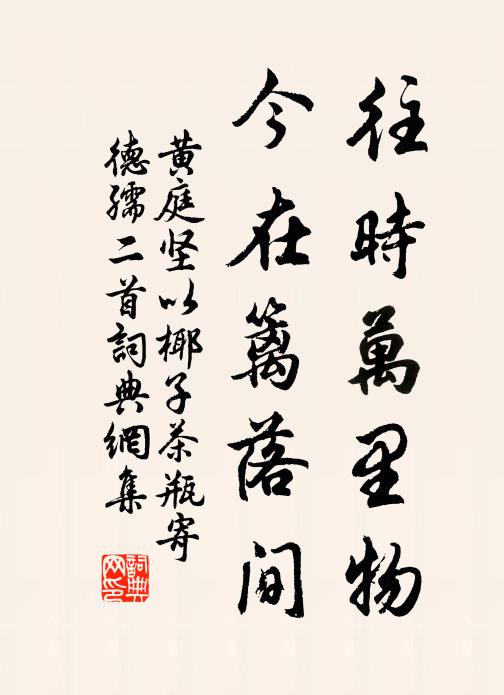 往時萬里物
今在籬落間
黄庭坚以椰子茶瓶寄
德孺二首詞典網集
詞典
网印